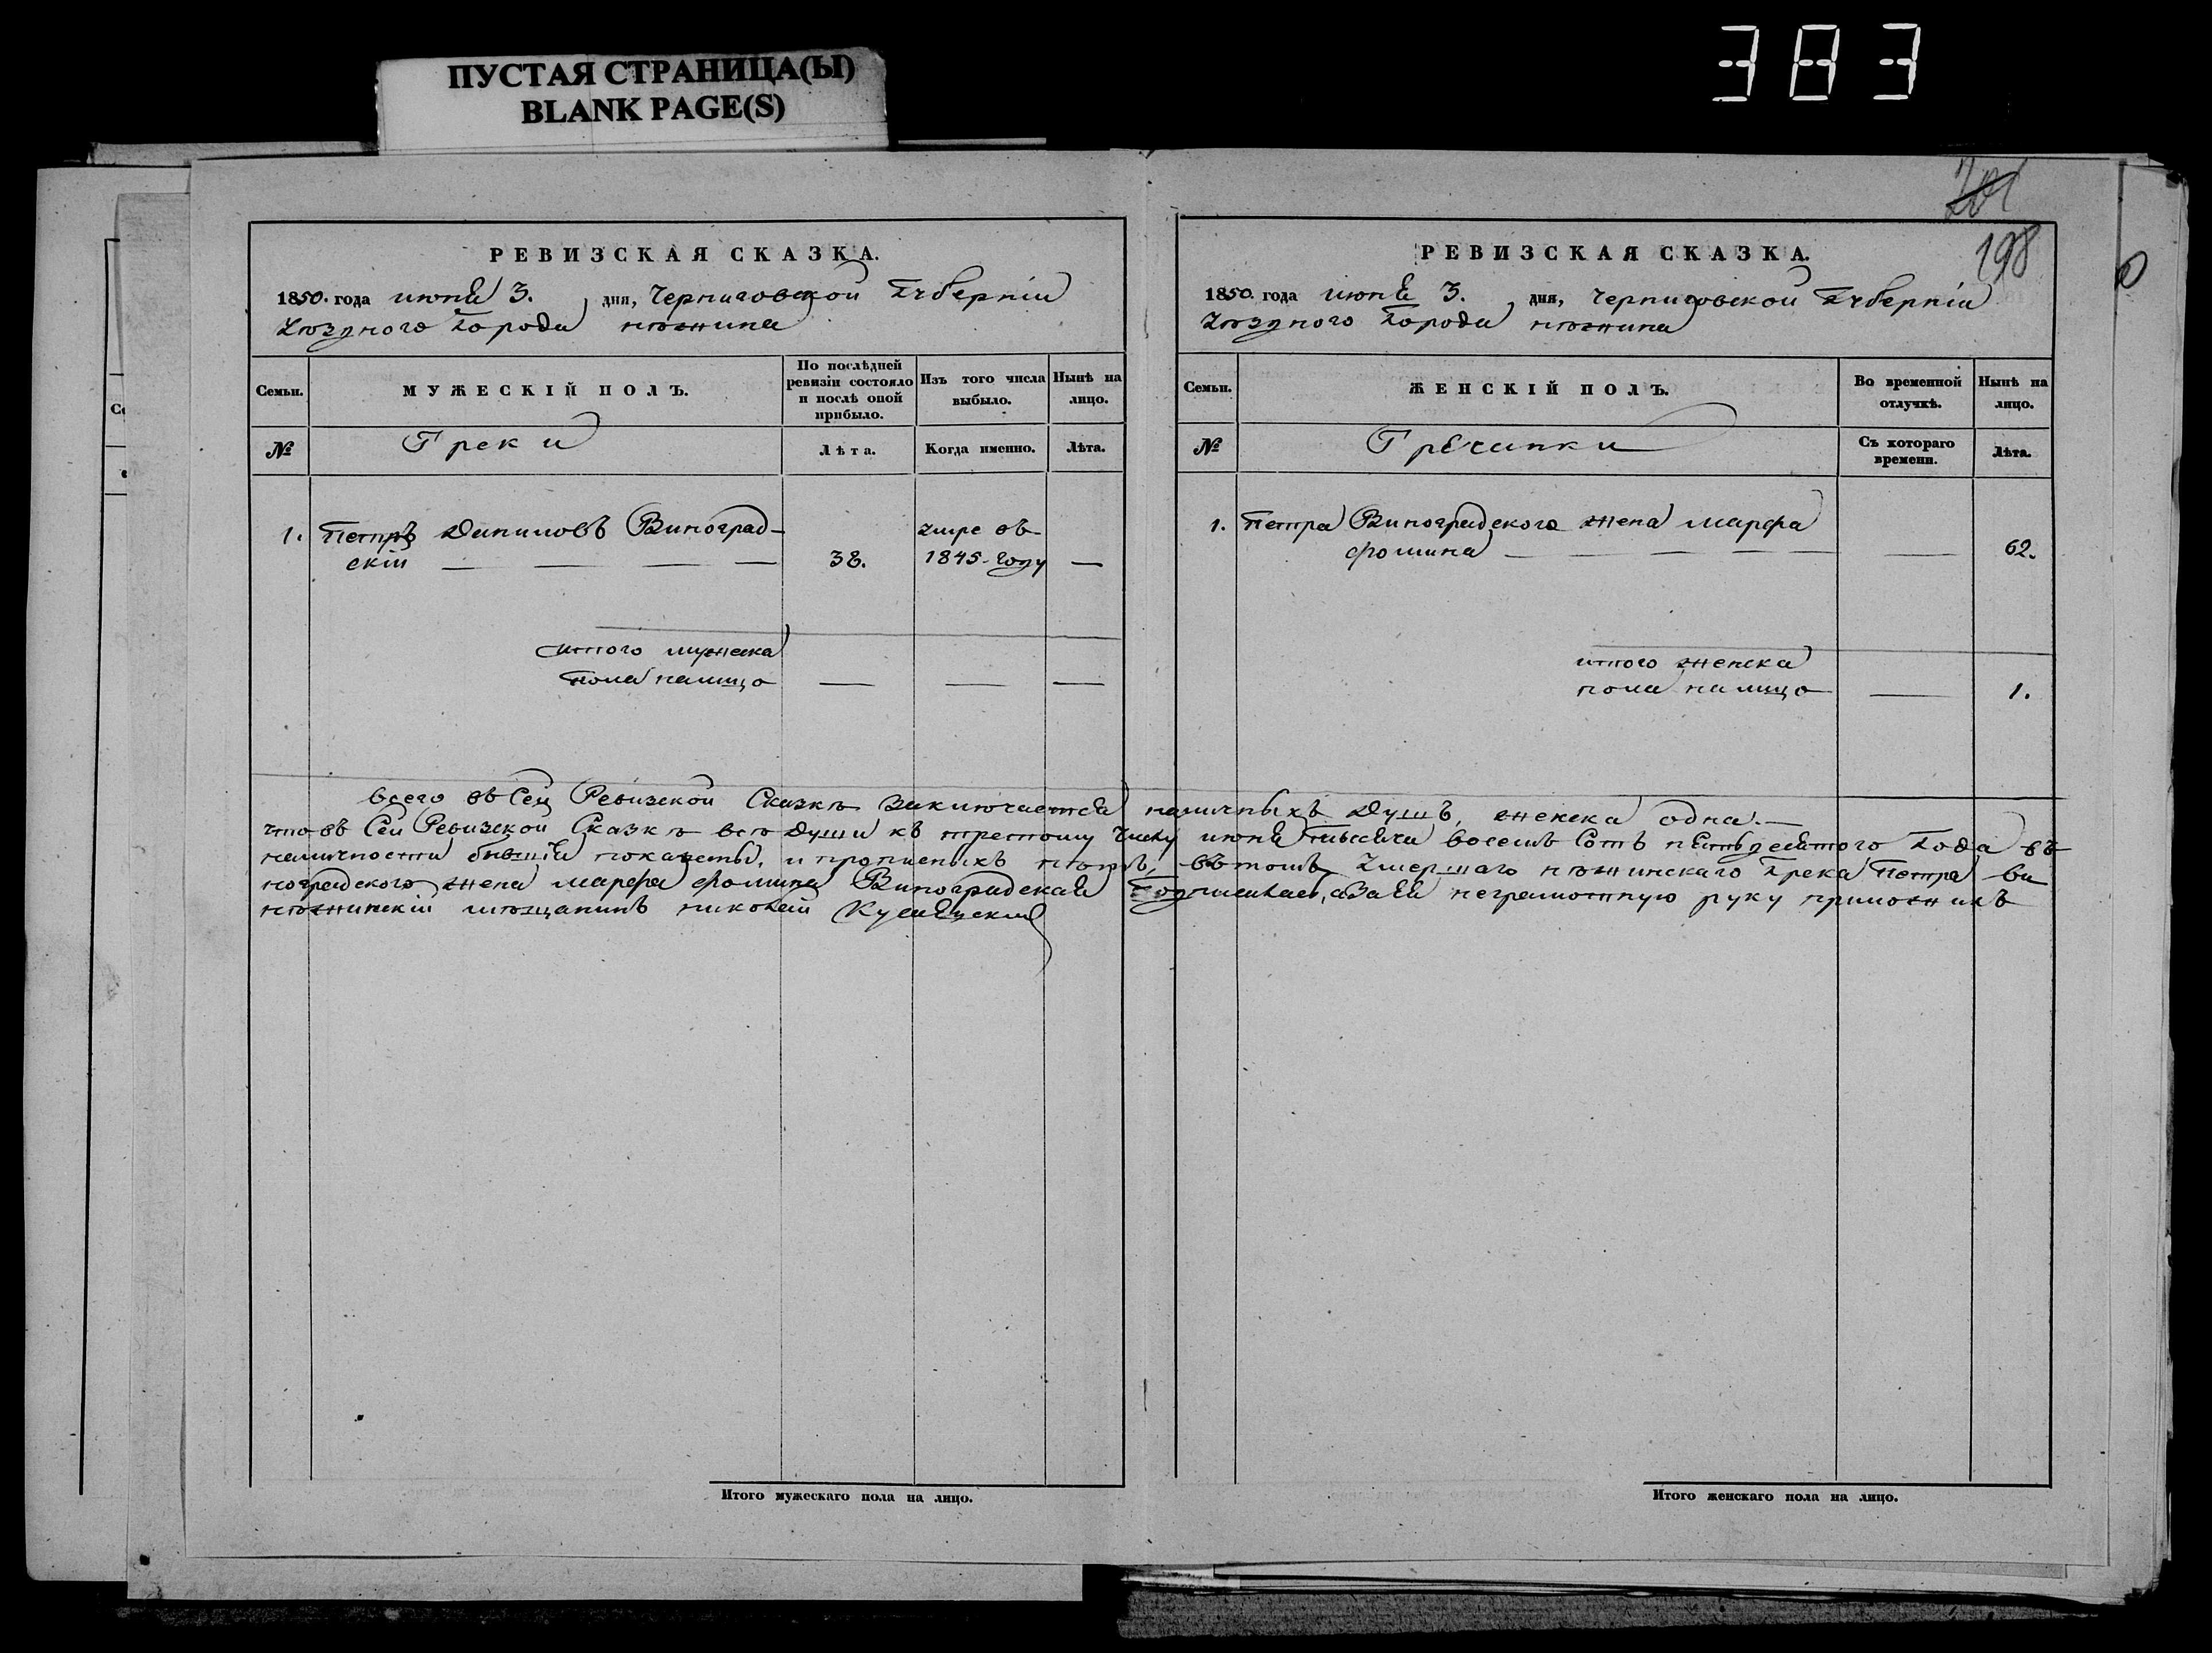 ПУСТАЯ СТРАНИЦА(Ы)
BLANK PAGE(S)
383
201
198
РЕВИЗСКАЯ СКАЗКА.
1850. года июня 3. дня, Черниговской Губерніи
Уѣзднаго города нѣжина
Семьи.
МУЖЕСКІЙ ПОЛЪ.
По послѣдней ревизіи состояло и послѣ оной прибыло.
Изъ того числа выбыло.
Нынѣ на лицо.
№
Греки
Лѣта.
Когда именно.
Лѣта.
1. Петръ Даниловъ Виноград-
скій — — — — 38. умре въ 1845-году —
итого мужеска
пола налицо — — —
РЕВИЗСКАЯ СКАЗКА.
1850. года июня 3. дня, Черниговской Губерніи
Уѣзднаго города нѣжина
Семьи.
ЖЕНСКІЙ ПОЛЪ.
Во временной отлучкѣ.
Нынѣ на лицо.
№
Гречанки
Съ котораго времени.
Лѣта.
1. Петра Виноградского жена марфа
фомина — — — — — 62.
итого женска
пола налицо — 1.
всего въ Сей Ревизской Сказкѣ Заключается наличныхъ Душъ, женска одна.—
что въ Сей Ревизской Сказкѣ всѣ Души къ третому Числу июня тысяча восемъ Сотъ пятьдесятого Года въ
наличности бывшія показаты, и прописныхъ нѣтъ, въ томъ Умершаго нѣжинскаго Грека Петра ви
ноградского жена марфа фомина Виноградская Подписалась, а За ея неграмотную руку приложилъ
нѣжинскій мѣщанинъ николай
Итого мужескаго пола на лицо.
Итого женскаго пола на лицо.